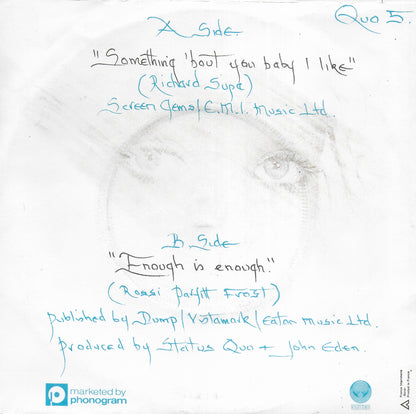 Quo 5.
A Side
"Something 'bout you baby I like"
(Richard Supa)
Screen Gems/E.M.I. Music Ltd.
B. Side
"Enough is enough."
(Rossi Parfitt Frost)
published by Dump/Vistamark/Eaton Music Ltd.
produced by Status Quo + John Eden.
marketed by
phonogram